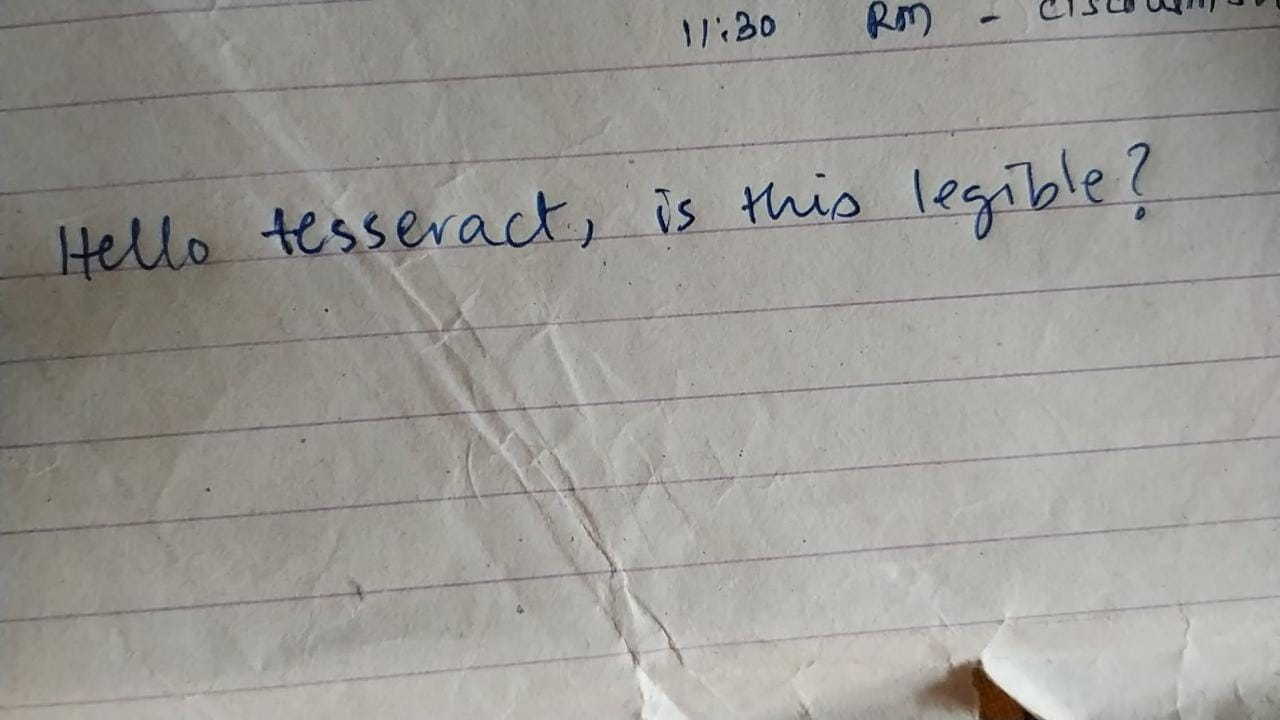 11:30 RM -
Hello tesseract, is this legible?